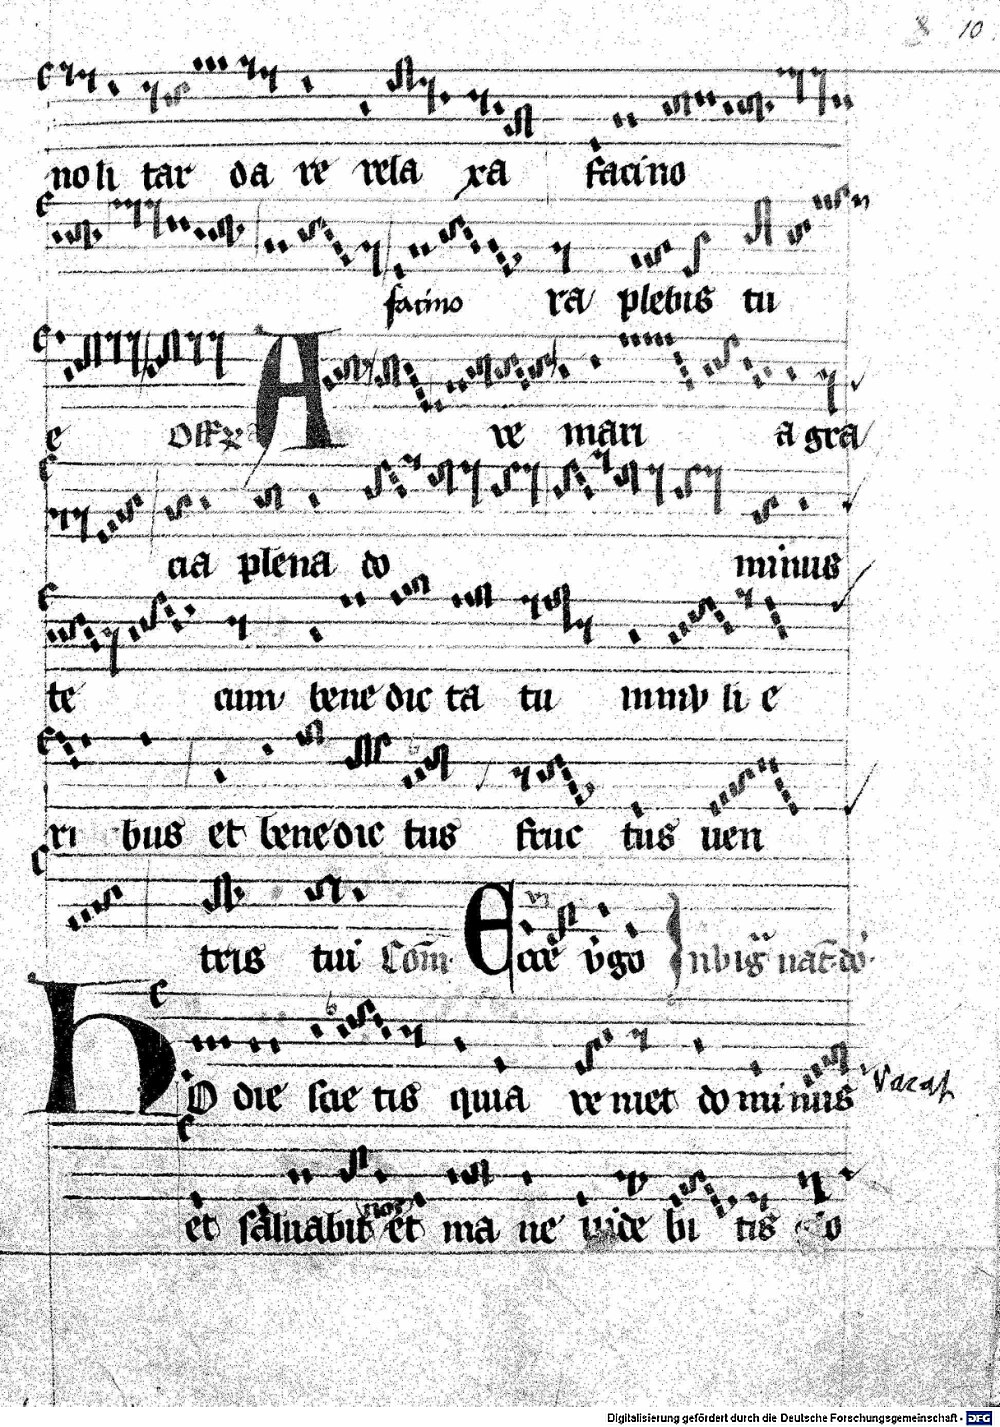 10
noli tar da re rela xa facino
facino ra plebis tu
e Off Aue mari a gra
cia plena do minus
te cum bene dic ta tu in mu li e
ri bus et bene dic tus fruc tus uen
tris tui Com Ecce v̄go In vig nat do
Ho die scie tis quia ue niet do minus vacat
et saluabit nos et ma ne uide bi tis glo
Digitalisierung gefördert durch die Deutsche Forschungsgemeinschaft - DFG